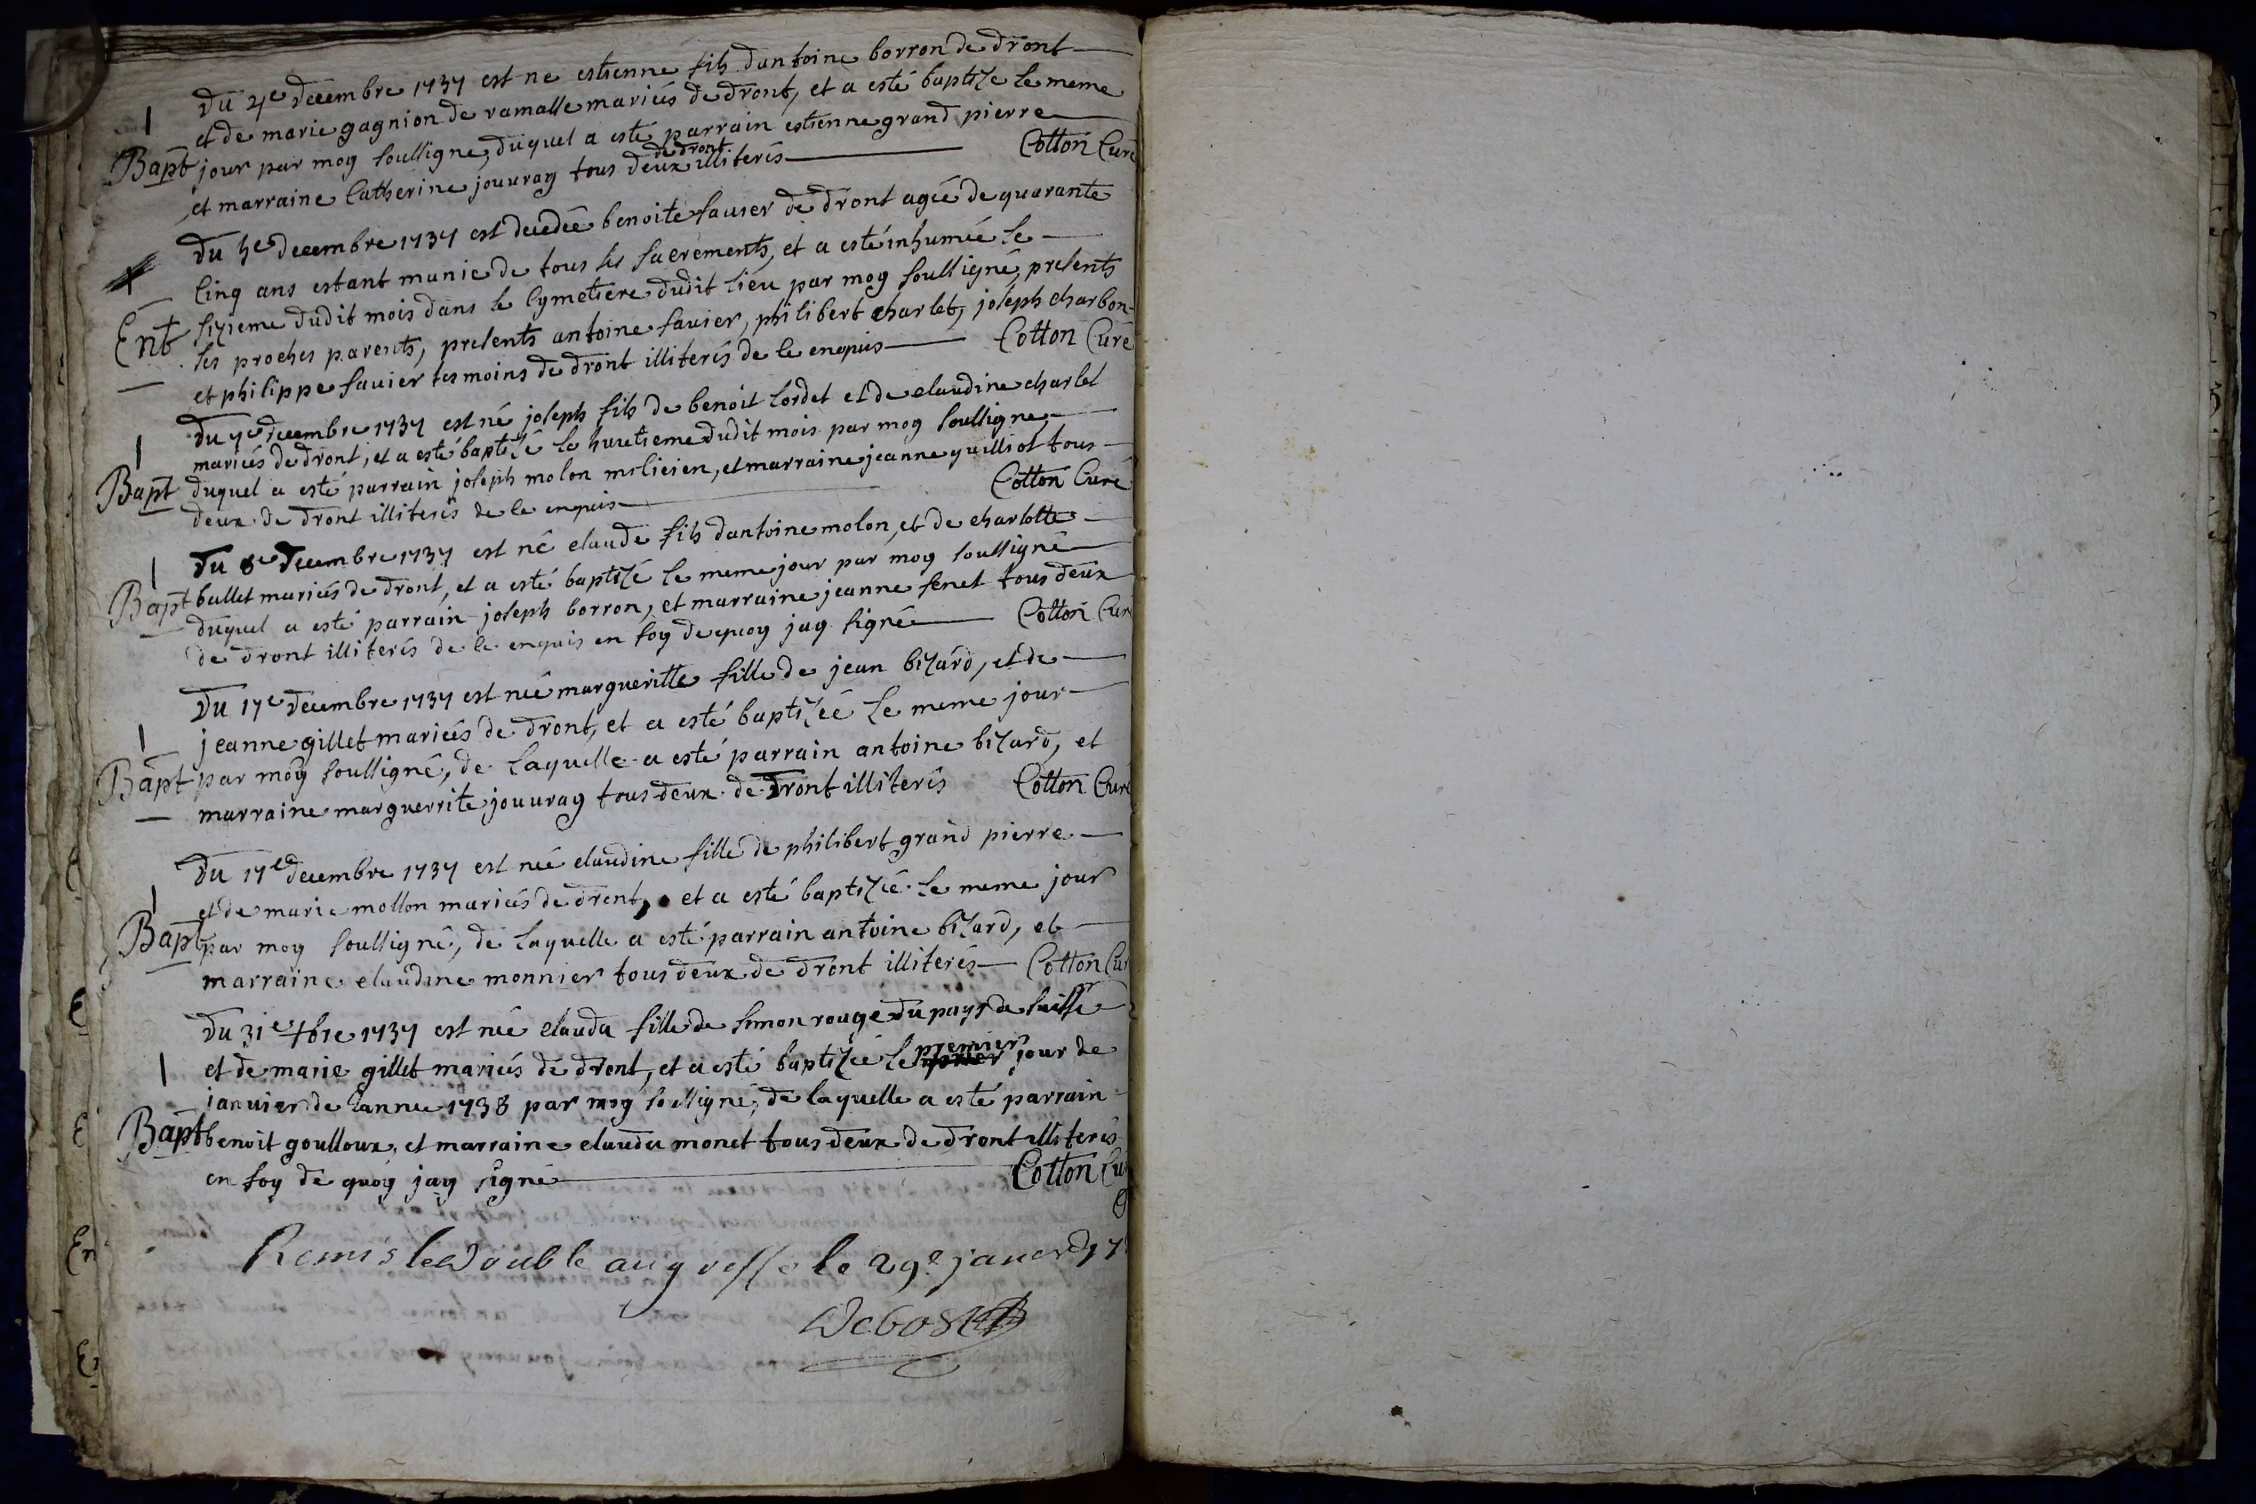 Du 4e decembre 1737 est ne estienne fils dantoine borron de dront
et de marie gagnion de ramalle mariés de dront, et a esté baptizé le meme
Bapt jour par moy soussigné, duquel a esté parrain estienne grand pierre
et marraine Catherine jouuray tous deux de dront illiterés Cotton Curé
Du 5e decembre 1737 est decedée benoite fauier de dront agée de quarante
Cinq ans estant munie de tous les sacrements, et a esté inhumée le
Ent sizieme dudit mois dans le Cymetiere dudit lieu par moy soussigné, presents
les proches parents, presents antoine fauier, philibert charlet, joseph charbon-
et philippe fauier tesmoins de dront illiterés de le enquis Cotton Curé
Du 7e decembre 1737 est né joseph fils de benoit Cordet et de claudine charlet
mariés de dront, et a esté baptizé le huictieme dudit mois par moy soussigné
Bapt duquel a esté parrain joseph molon milicien, et marraine jeanne quilliot tous
deux de dront illiterés de le enquis Cotton Curé
Du 8e Decembre 1737 est né claude fils dantoine molon, et de charlotte
Bapt ballet mariés de dront, et a esté baptizé le meme jour par moy soussigné
duquel a esté parrain joseph borron, et marraine jeanne fenet tous deux
de dront illiterés de le enquis en foy de quoy jay signé Cotton Cur
Du 17e decembre 1737 est née margueritte fille de jean bizard, et de
jeanne gillet mariés de dront, et a esté baptizée le meme jour
Bapt par moy soussigné, de laquelle a esté parrain antoine bizard, et
marraine marguerrite jouuray tous deux de Dront illiterés Cotton Curé
Du 17e decembre 1737 est née claudine fille de philibert grand pierre
et de marie mollon mariés de dront, et a esté baptizée le meme jour
Bapt par moy soussigné, de laquelle a esté parrain antoine bizard, et
marraine claudine monnier tous deux de dront illiterés Cotton Cu
Du 31e xbre 1737 est née clauda fille de simon rouge du pays de suisse
et de marie gillet mariés de dront, et a esté baptizée le premier jour de
januier de lannee 1738 par moy soussigné, de laquelle a esté parrain
Bapt benoit goulloux, et marraine clauda monet tous deux de dront illiterés
en foy de quoy jay signé Cotton Cu
Remis le Double au greffe le 29e januer 17
Debost